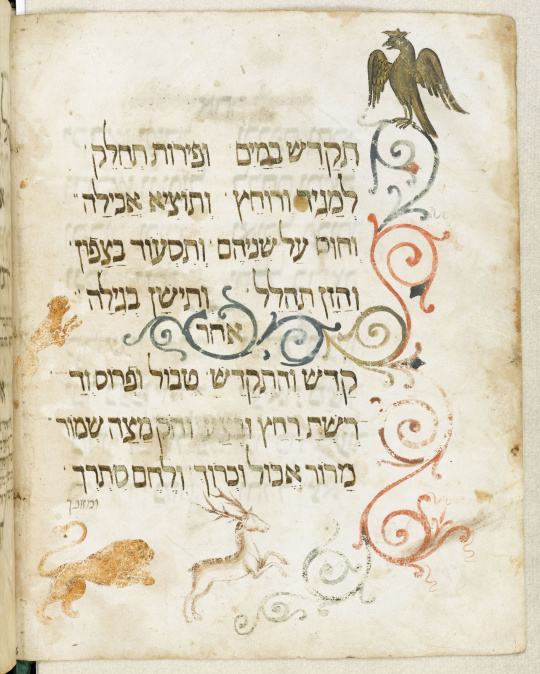 תקדש במים ופירות תחלק
למגיד ורוחץ ותוציא אכילה
וחוס על שניהם ותסעוד בצפון
והזן תהלל ותישן בגילה
אחר
קדש והתקדש טבול ופרוס וד
רשת רחץ ובצע מצה שמור
מרור אכול וכרוך ולחם סתרך
ומזונך